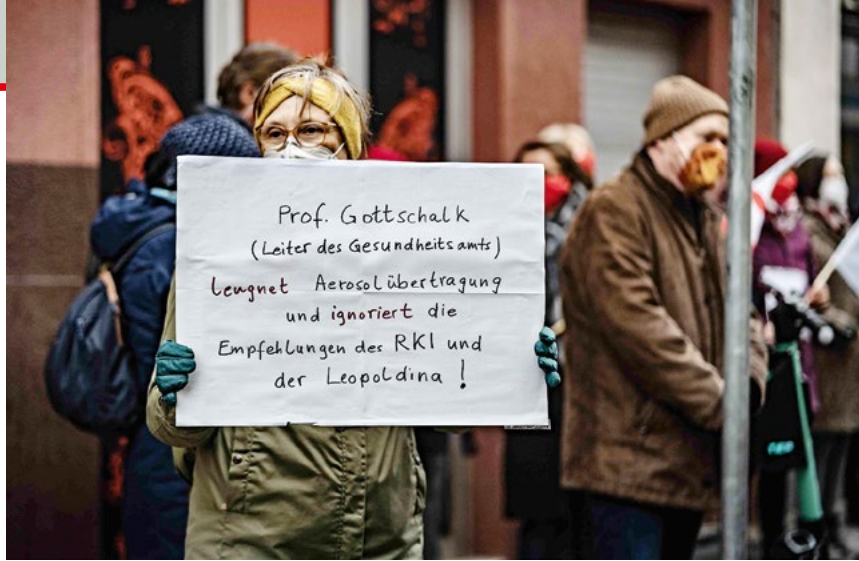 Prof. Gottschalk
(Leiter des Gesundheitsamts)
leugnet Aerosolübertragung
und ignoriert die
Empfehlungen des RKI und
der Leopoldina !